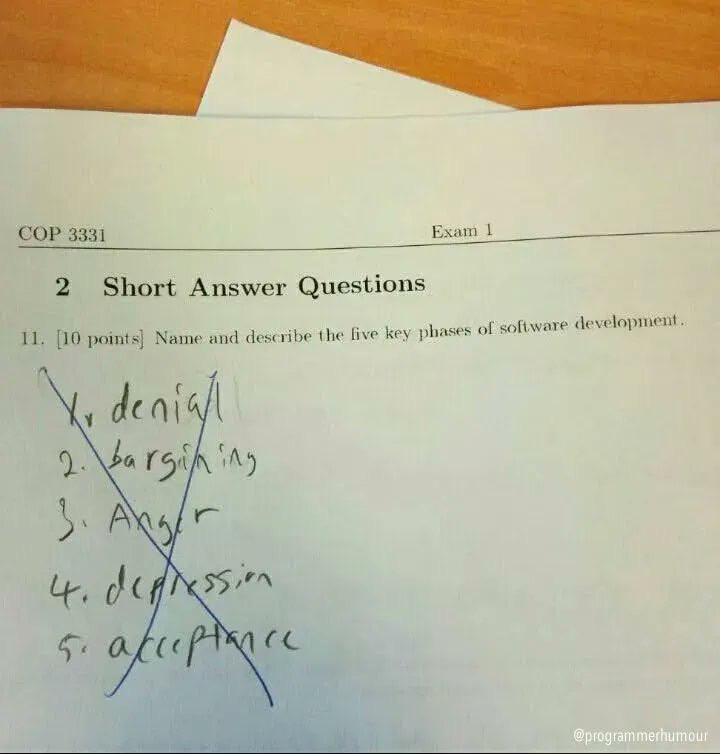 COP 3331 Exam 1
2 Short Answer Questions
11. [10 points] Name and describe the five key phases of software development.
1. denial
2. bargining
3. Anger
4. depression
5. acceptance
@programmerhumour